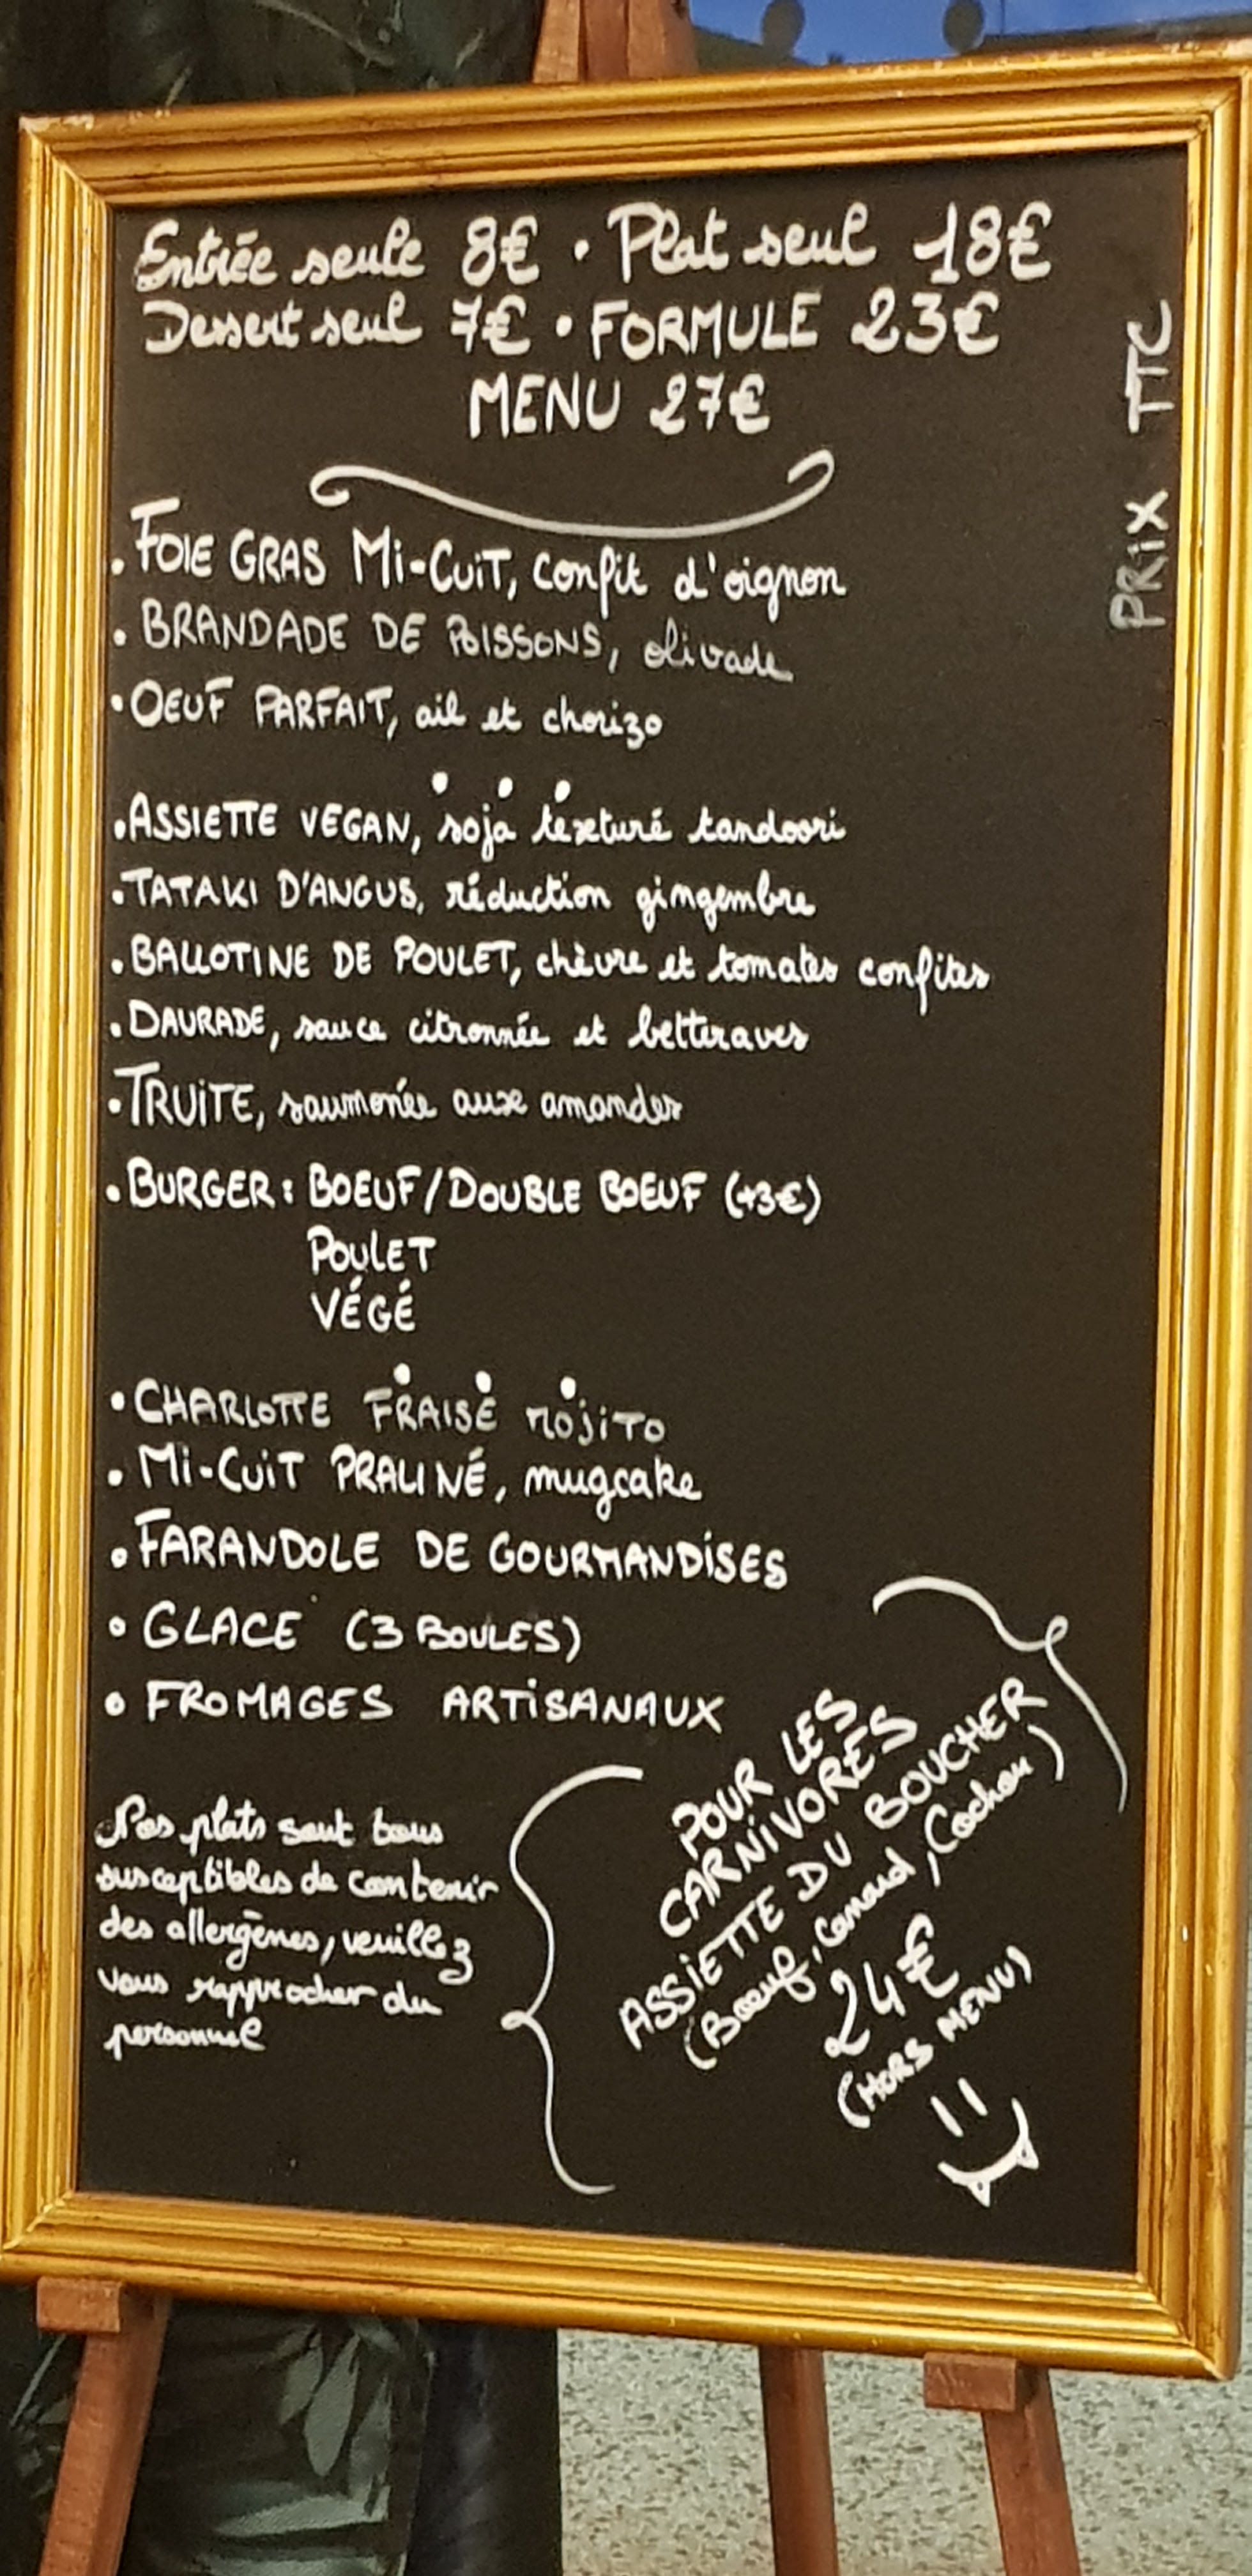 Entrée seule 8€ • Plat seul 18€
Dessert seul 7€ • FORMULE 23€
MENU 27€
PRiX TTC
• FOIE GRAS Mi-CuiT, confit d'oignon
• BRANDADE DE POISSONS, olivade
• OEUF PARFAIT, ail et chorizo
• ASSIETTE VEGAN, soja texturé tandoori
• TATAKI D'ANGUS, réduction gingembre
• BALLOTINE DE POULET, chèvre et tomates confites
• DAURADE, sauce citronnée et betteraves
• TRUiTE, saumonée aux amandes
• BURGER: BOEUF/DOUBLE BOEUF (+3€)
POULET
VÉGÉ
• CHARLOTTE FRAISE MOJiTO
• Mi-CuiT PRALINÉ, mugcake
• FARANDOLE DE GOURMANDiSES
• GLACE (3 BOULES)
• FROMAGES ARTiSANAUX
Nos plats sont tous
susceptibles de contenir
des allergènes, veuillez
vous rapprocher du
personnel
POUR LES
CARNIVORES
ASSiETTE DU BOUCHER
(Boeuf, Canard, Cochon)
24€
(HORS MENU)